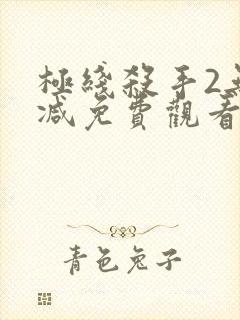 極綫殺手2
减免費觀看
青色兔子